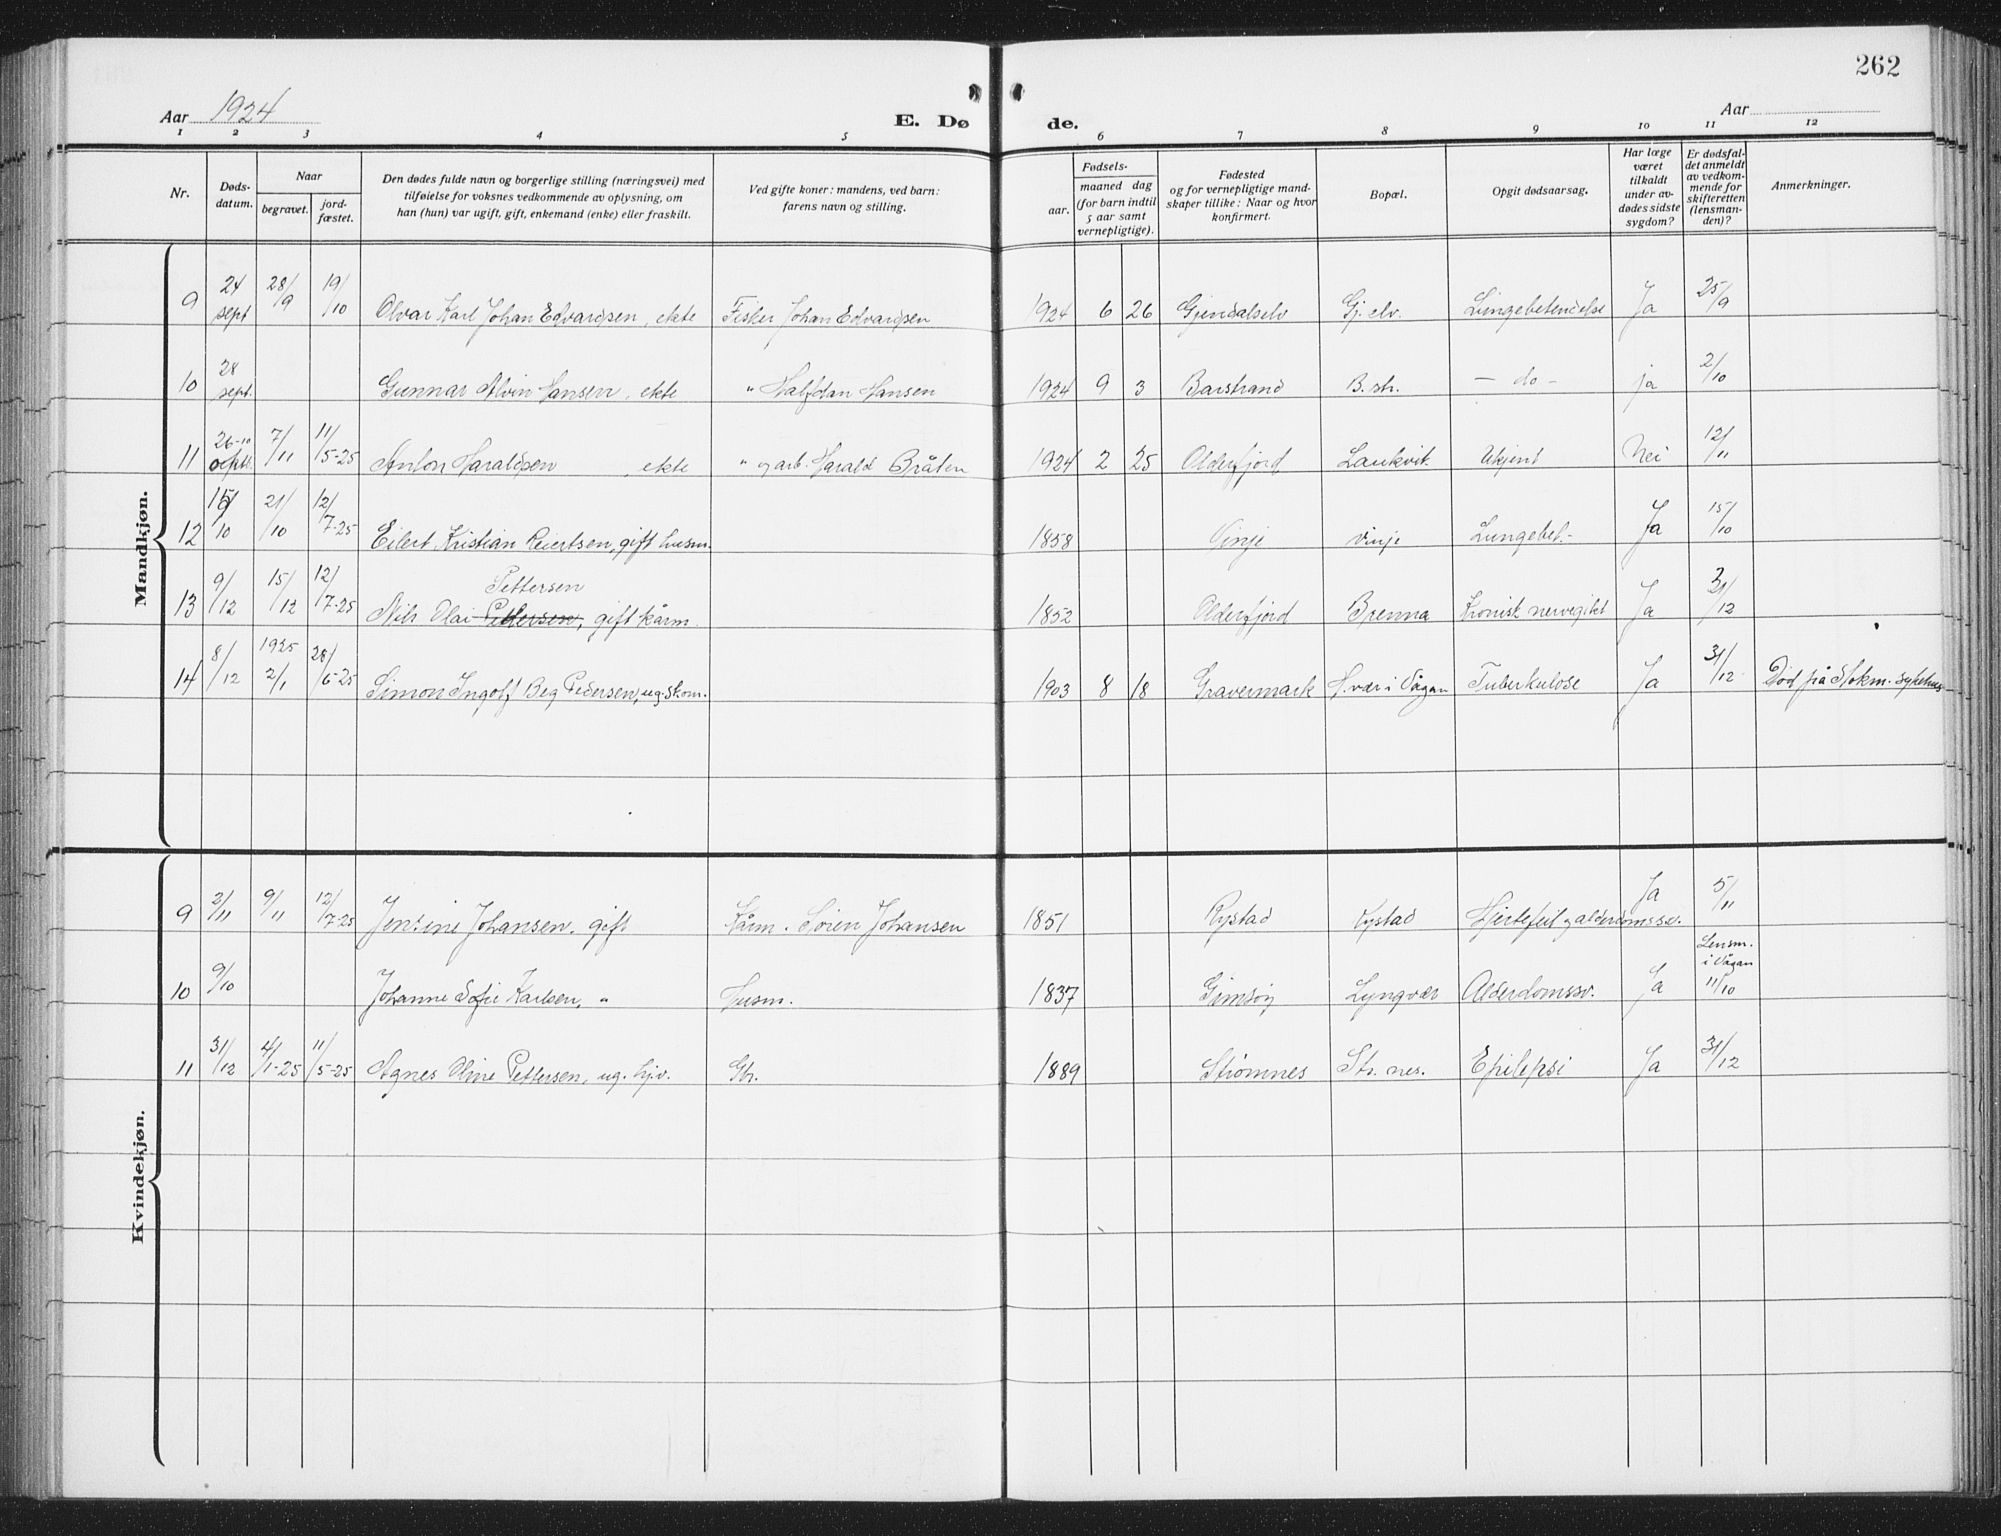 262
Aar 1924
E. Døde.
Aar
1 2 3 4 5 6 7 8 9 10 11 12
Nr.
Døds-
datum.
Naar
begravet.
jord-
fæstet.
Den dødes fulde navn og borgerlige stilling (næringsvei) med
tilføielse for voksnes vedkommende av oplysning, om
han (hun) var ugift, gift, enkemand (enke) eller fraskilt.
Ved gifte koner: mandens, ved barn:
farens navn og stilling.
Fødsels-
aar.
maaned dag
(for barn indtil
5 aar samt
vernepligtige).
Fødested
og for vernepligtige mand-
skaper tillike: Naar og hvor
konfirmert.
Bopæl.
Opgit dødsaarsag.
Har læge
været
tilkaldt
under av-
dødes sidste
sygdom?
Er dødsfal-
det anmeldt
av vedkom-
mende for
skifteretten
(lensman-
den)?
Anmerkninger.
Mandkjøn.
9 24 sept 28/9 19/10 Olvar Karl Johan Edvardsen, ekte Fisker Johan Edvardsen 1924 6 26 Gjendalselv Gj. elv. Lungebetendelse Ja 25/9
10 28 sept. Gunnar Alvin Hansen, ekte " Halfdan Hansen 1924 9 3 Barstrand B. str. - do - ja 2/10
11 26-10 7/11 11/5-25 Anton Haraldsen, ekte " og arb. Harald Bråten 1924 2 25 Olderfjord Laukvik Ukjent Nei 12/11
12 15/10 21/10 12/7-25 Eilert Kristian Reiertsen, gift husm. 1858 Vinje vinje Lungebet. Ja 15/10
Pettersen
13 9/12 15/12 12/7-25 Nils Olai Petersen, gift kårm. 1852 Olderfjord Brenna Kronisk nervegikt Ja 31/12
1925
14 8/12 2/1 28/6-25 Simon Ingolf Beg Pedersen, ug. skom. 1903 8 18 Gravermark H. vær i Vågan Tuberkulose Ja 31/12 Død på Stokm. sykehus
Kvindekjøn.
9 2/11 9/11 12/7-25 Jensine Johansen, gift Kårm. Søren Johansen 1851 Rystad Rystad Hjertefeil og alderdomssv. Ja 5/11
Lensm.
i Vågan
10 9/10 Johanne Sofie Karlsen, " Husm. 1837 Gimsøy Lyngvær Alderdomssv. Ja 11/10
11 31/12 4/1-25 11/5-25 Agnes Oline Pettersen, ug. hjv. Gbr. 1889 Strømnes Str. nes. Epilepsi Ja 31/12